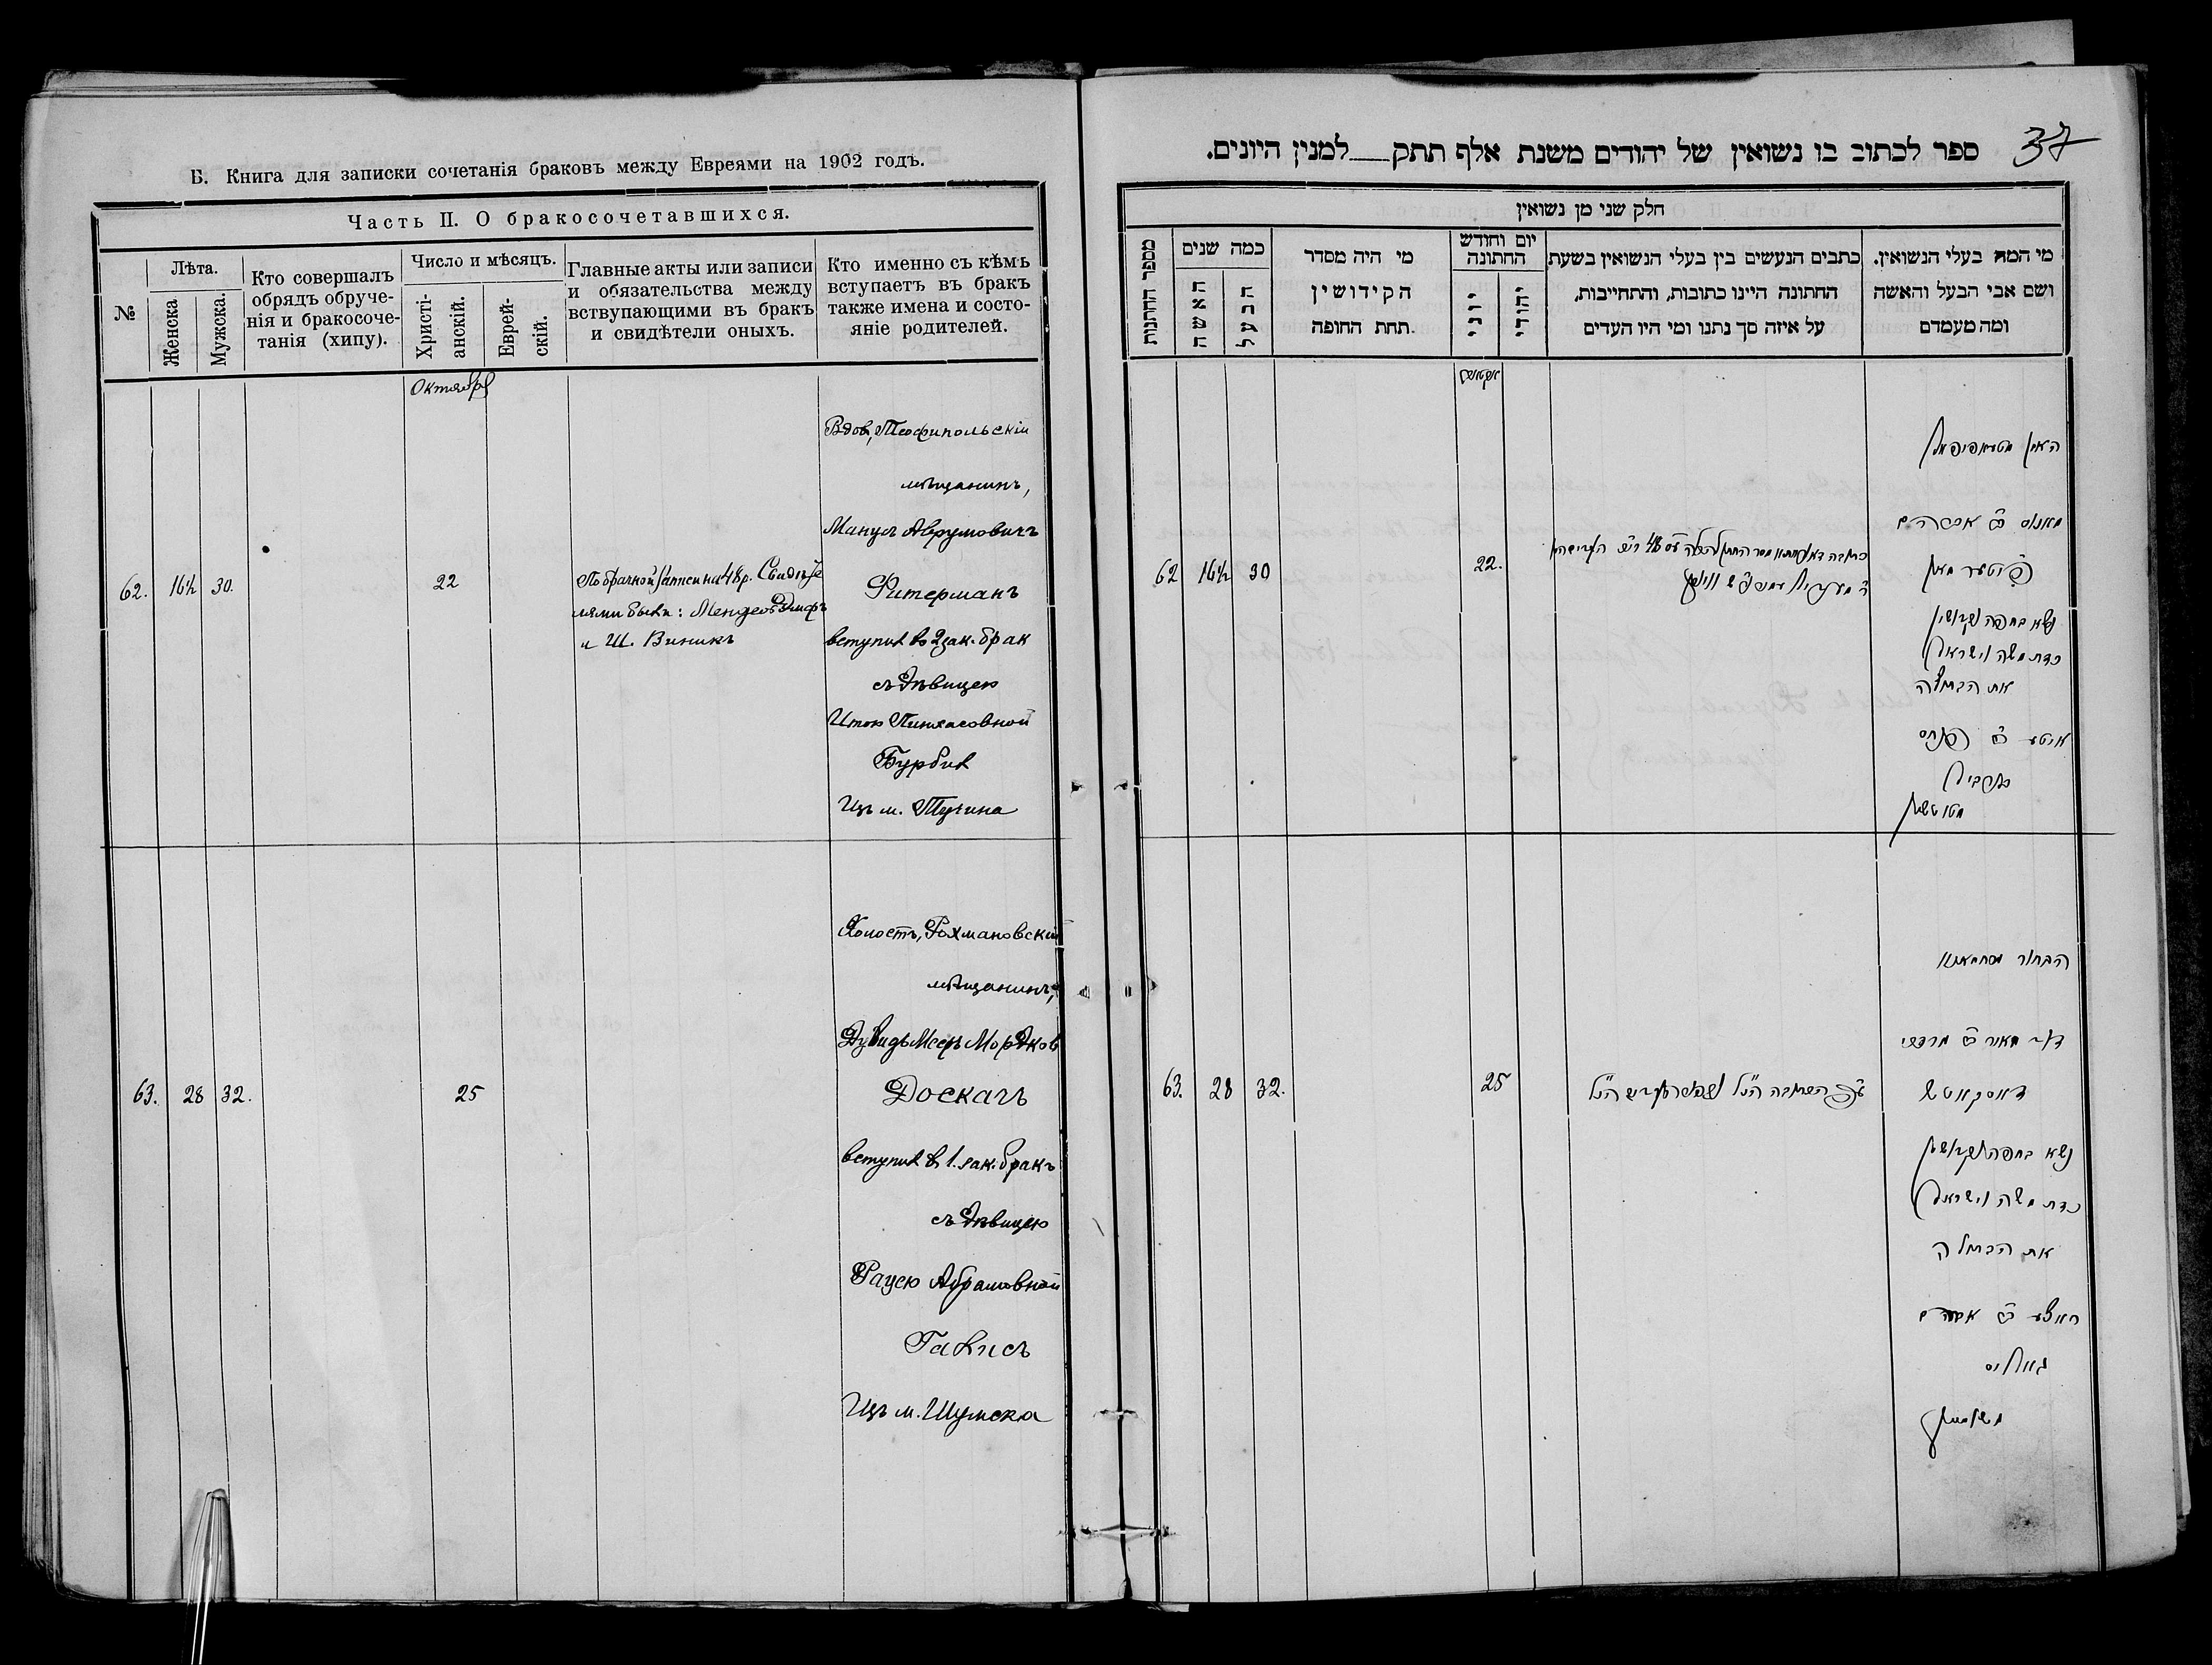 Б. Книга для записки сочетанія браковъ между Евреями на 1902 годъ.
Часть II. О бракосочетавшихся.
№
Лѣта.
Женска
Мужска.
Кто совершалъ
обрядъ обруче-
нія и бракосоче-
танія (хипу).
Число и мѣсяцъ.
Христі-
анскій.
Еврей-
скій.
Главные акты или записи
и обязательства между
вствупающими въ бракъ
и свидѣтели оныхъ.
Кто именно съ кѣмъ
вступаетъ въ бракъ
также имена и состо-
яніе родителей.
Октября
62. 16½ 30. 22
По брачной записи на 48 р. Свидѣте
лями были: Мендель
и Ш. Виникъ
Вдов, Теофипольскій
мѣщанинъ,
Манус Аврумовичъ
Фитерманъ
вступил во 2 зак. брак
съ дѣвицею
Итою Пинхасовной
Бурбил
Изъ м. Тучина
63. 28 32. 25
Холостъ, Рохмановскій
мѣщанинъ,
Дувидъ Меер Мордков
Доскачъ
вступил в 1. зак. бракъ
съ дѣвицею
Рацею Абрамовной
Галисъ
Изъ м. Шумска
37
ספר לכתוב בו נשואין של יהודים משנת אלף תתק למנין היונים.
חלק שני מן נשואין
מספר החתנות
כמה שנים
האשה
הבעל
מי היה מסדר
הקידושין
תחת החופה.
יום וחודש
החתונה
יוני
יהודי
כתבים הנעשים בין בעלי הנשואין בשעת
החתונה היינו כתובות, והתחייבות,
על איזה סך נתנו ומי היו העדים
מי המה בעלי הנשואין.
ושם אבי הבעל והאשה
ומה מעמדם
62 16½ 30 22.
מאנוס ב״ר אברהם
פיטערמאן
נשא בחופה וקדושין
כדת משה וישראל
את הבתולה
איטע ב״ר פנחס
63. 28 32. 25
הבחור
דוד מאיר ב״ר מרדכי
דאסקאטש
נשא בחופה וקדושין
כדת משה וישראל
את הבתולה
ראצע ב״ר אברהם
גאליס
משומסק